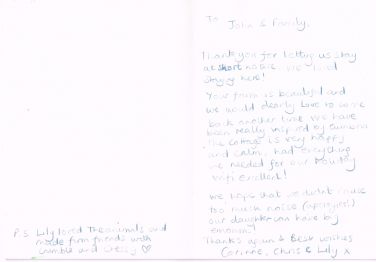 To
John & Family,
Thank you for letting us stay
at short notice. We loved
staying here!
Your farm is beautiful and
we would dearly love to come
back another time. We have
been really inspired by
The cottage is very happy
and calm, had everything
we needed for our holiday
wifi excellent!
We hope that we didnt make
too much noise (apologies!).
our daughter can have big
emotions!
Thanks again & Best wishes
Corinne, Chris & Lily x
P.S. Lily loved the animals and
made firm friends with
and